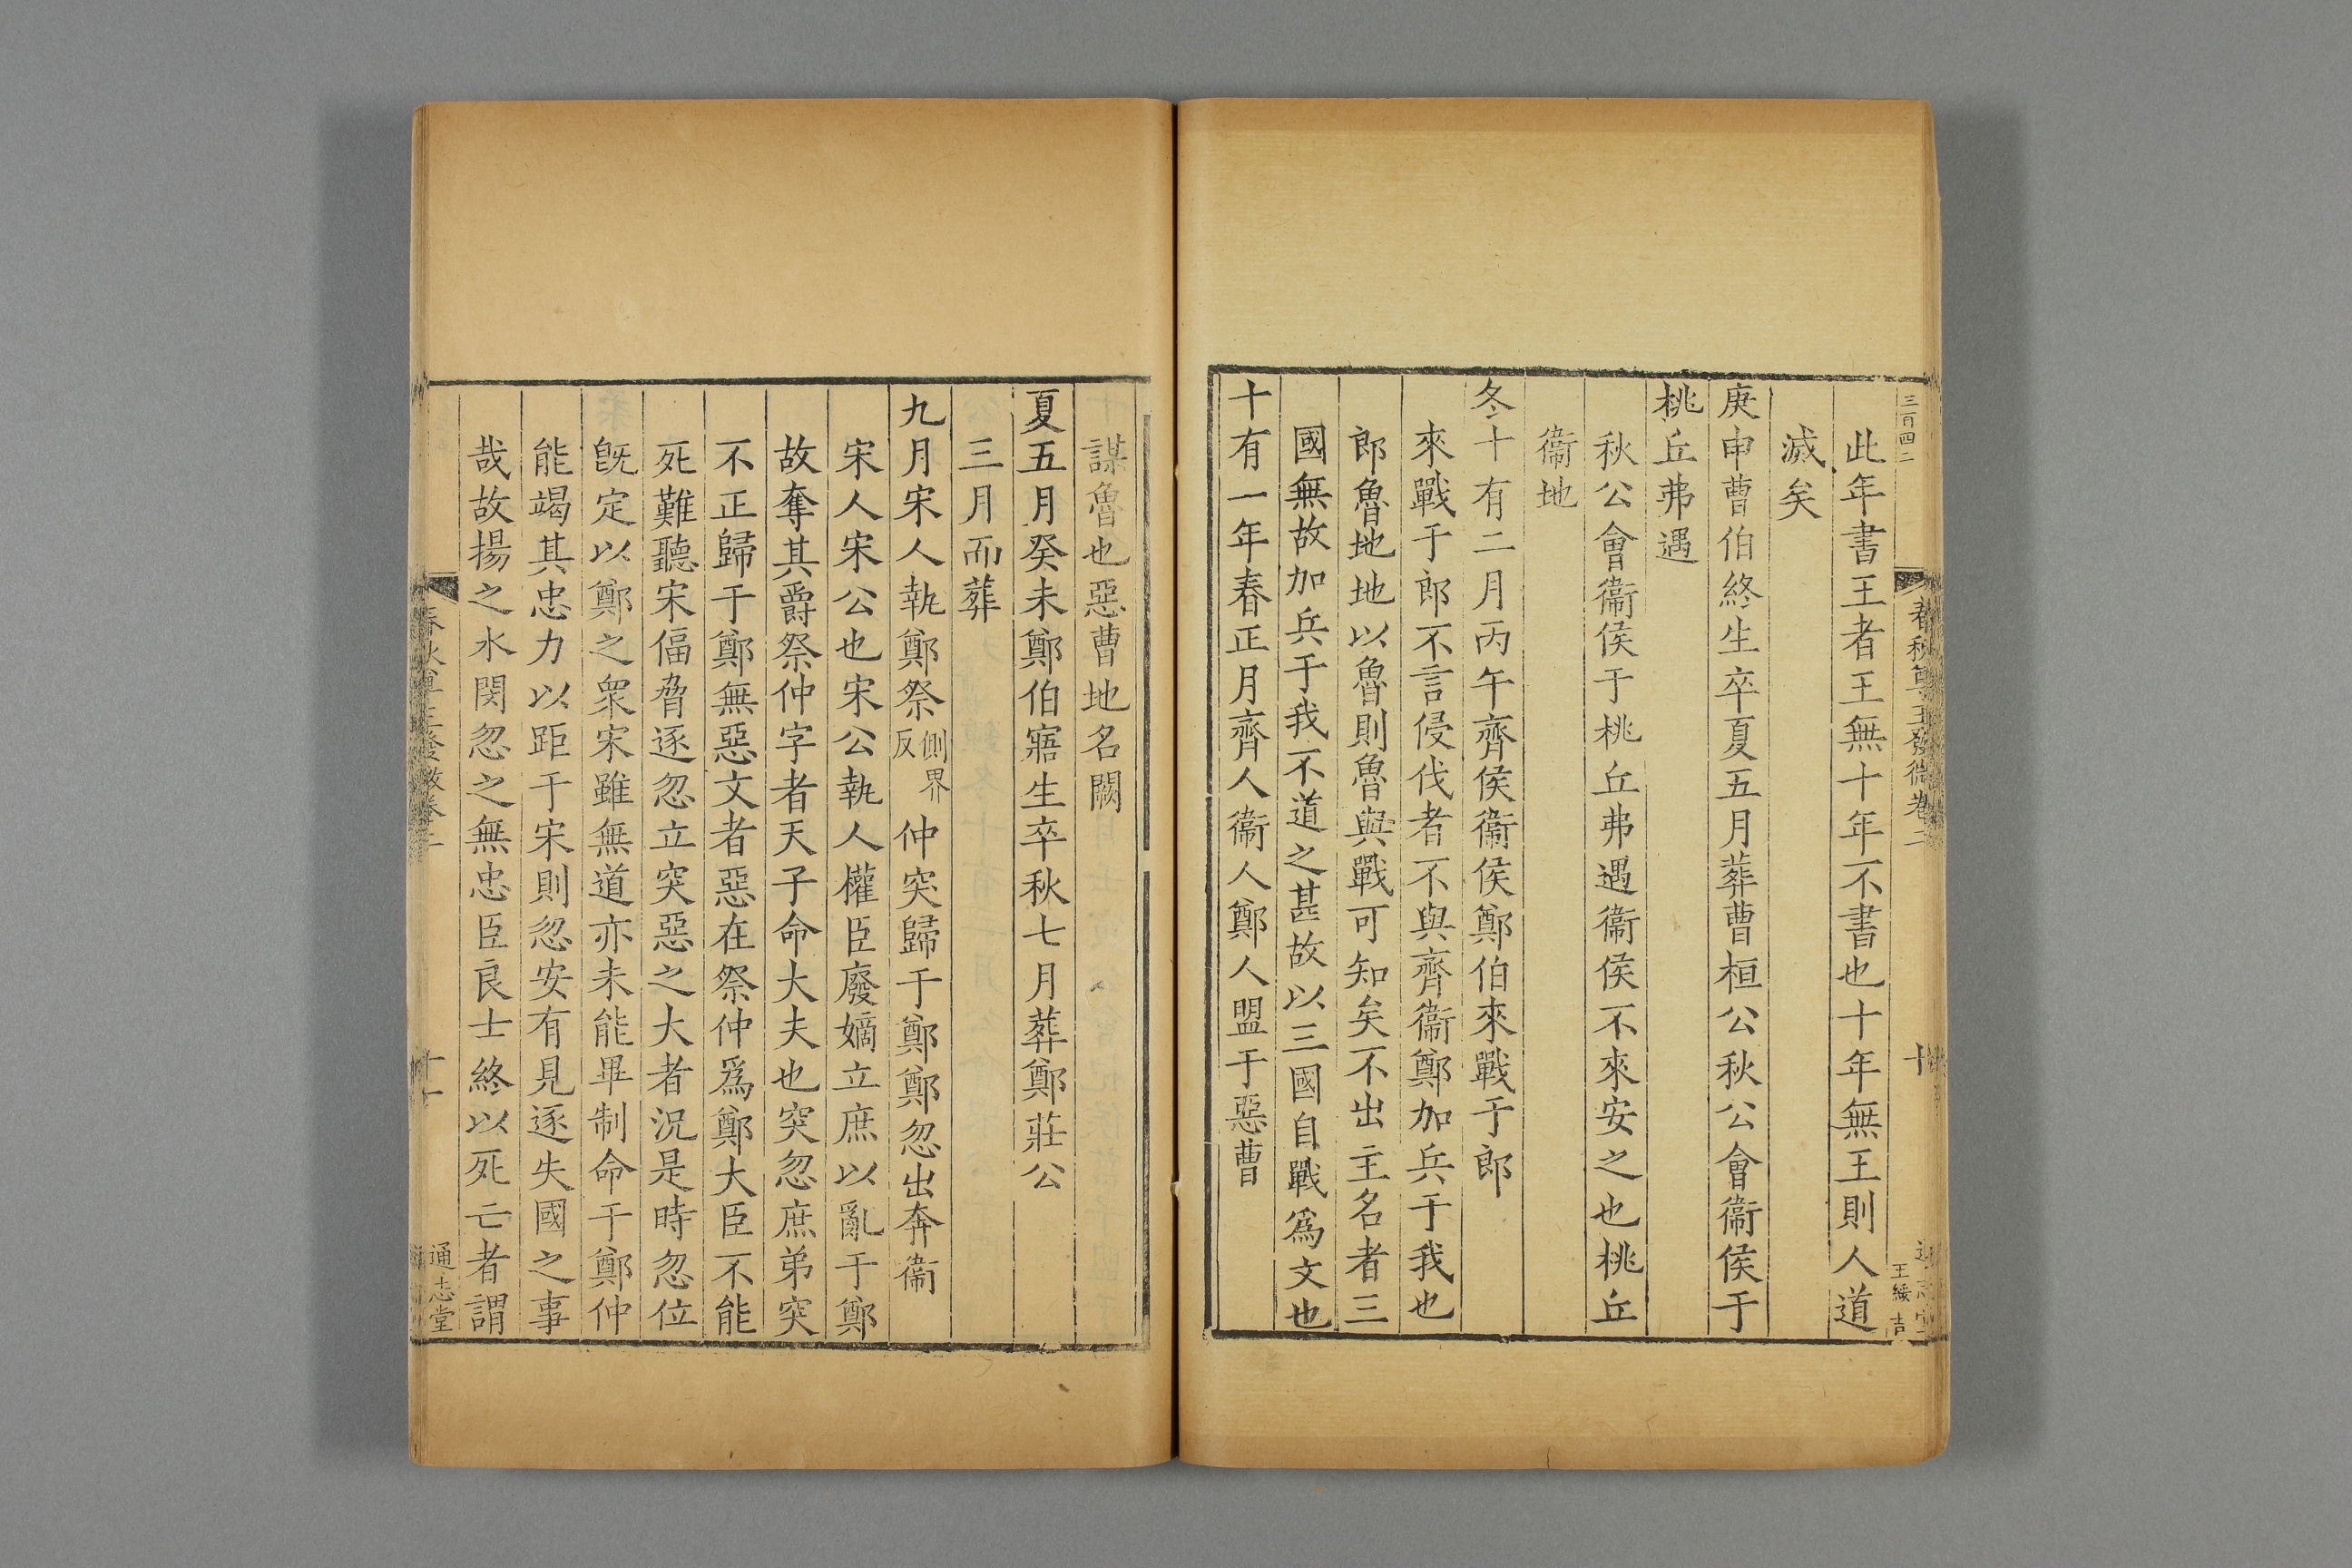 三百四二
春秋尊王發微卷二
十
王綏 吉
此年書王者王無十年不書也十年無王則人道
滅矣
庚申曹伯終生卒夏五月葬曹桓公秋公會衞侯于
桃丘弗遇
秋公會衞侯于桃丘弗遇衞侯不來安之也桃丘
衞地
冬十有二月丙午齊侯衞侯鄭伯來戰于郎
來戰于郎不言侵伐者不與齊衞鄭加兵于我也
郎魯地地以魯則魯與戰可知矣不出主名者三
國無故加兵于我不道之甚故以三國自戰爲文也
十有一年春正月齊人衞人鄭人盟于惡曹
謀魯也惡曹地名闕
夏五月癸未鄭伯寤生卒秋七月葬鄭莊公
三月而葬
九月宋人執鄭祭側界反仲突歸于鄭鄭忽出奔衞
宋人宋公也宋公執人權臣廢嫡立庶以亂于鄭
故奪其爵祭仲字者天子命大夫也突忽庶弟突
不正歸于鄭無惡文者惡在祭仲爲鄭大臣不能
死難聽宋偪脅逐忽立突惡之大者況是時忽位
旣定以鄭之衆宋雖無道亦未能畢制命于鄭仲
能竭其忠力以距于宋則忽安有見逐失國之事
哉故揚之水閔忽之無忠臣良士終以死亡者謂
春秋尊王發微卷二
十一
通志堂